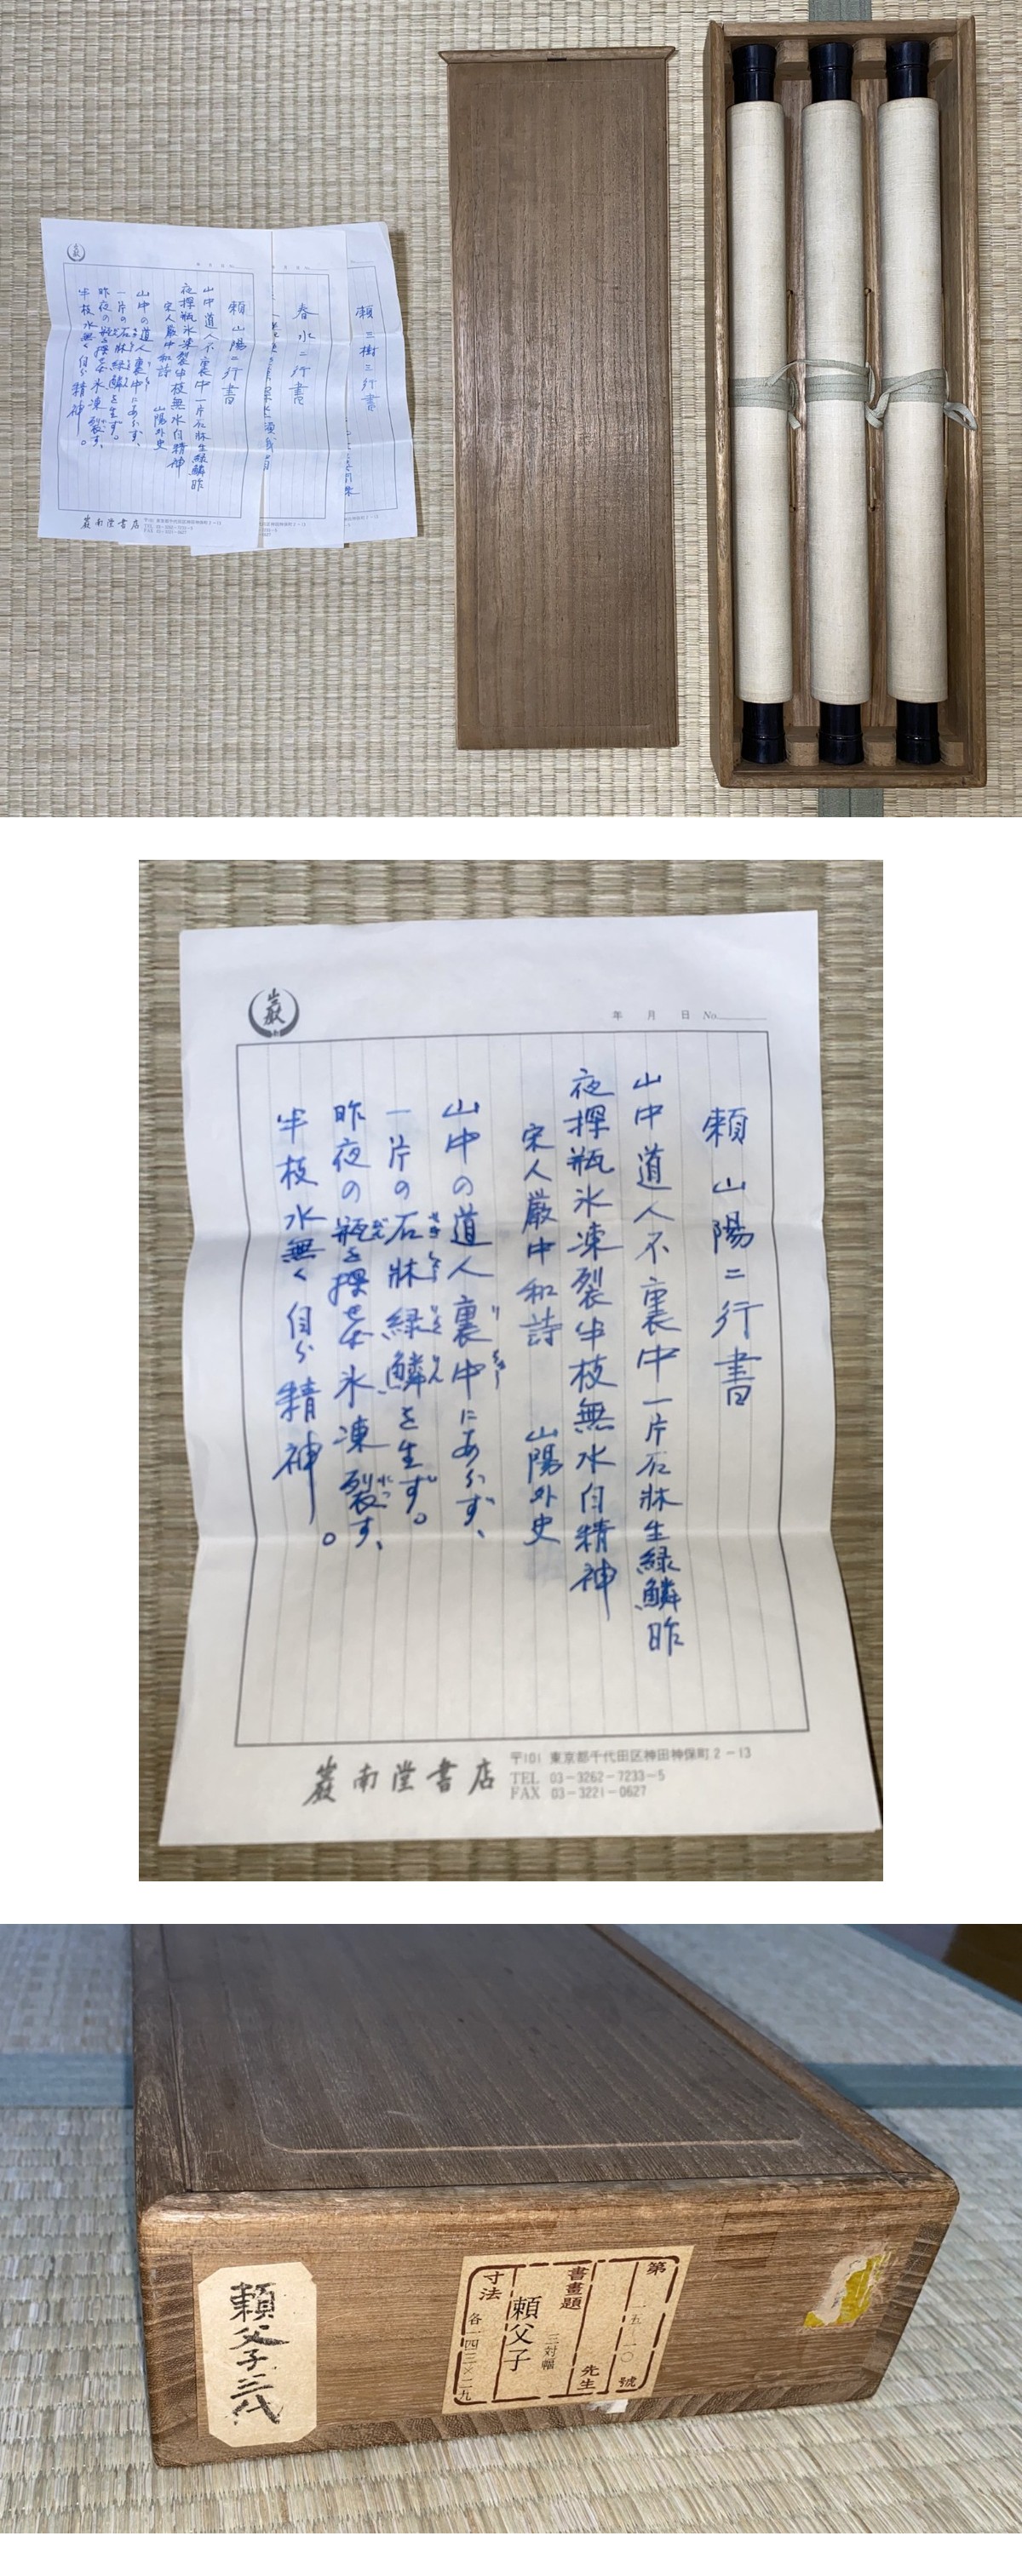 頼三樹三行書
春水二行書
頼山陽二行書
山中道人不裏中一片石牀生緑鱗昨
夜探瓶氷凍裂半枝無水自精神
宋人厳中和詩 山陽外史
山中の道人裏中にあらず、
一片の石牀緑鱗を生ず。
半枝水無く自ら精神。
巌南堂書店
巌
年 月 日 No.
頼山陽二行書
山中道人不裏中一片石牀生緑鱗昨
夜探瓶氷凍裂半枝無水自精神
宋人厳中和詩 山陽外史
山中の道人裏中にあらず、
一片の石牀緑鱗を生ず。
昨夜の瓶を探せば氷凍裂す、
半枝水無く自ら精神。
巌南堂書店
〒101 東京都千代田区神田神保町2-13
TEL 03-3262-7233-5
FAX 03-3221-0627
頼父子三代
第 一五一〇 號
先生
書畫題
三対幅
頼父子
寸法 各一四三×二九